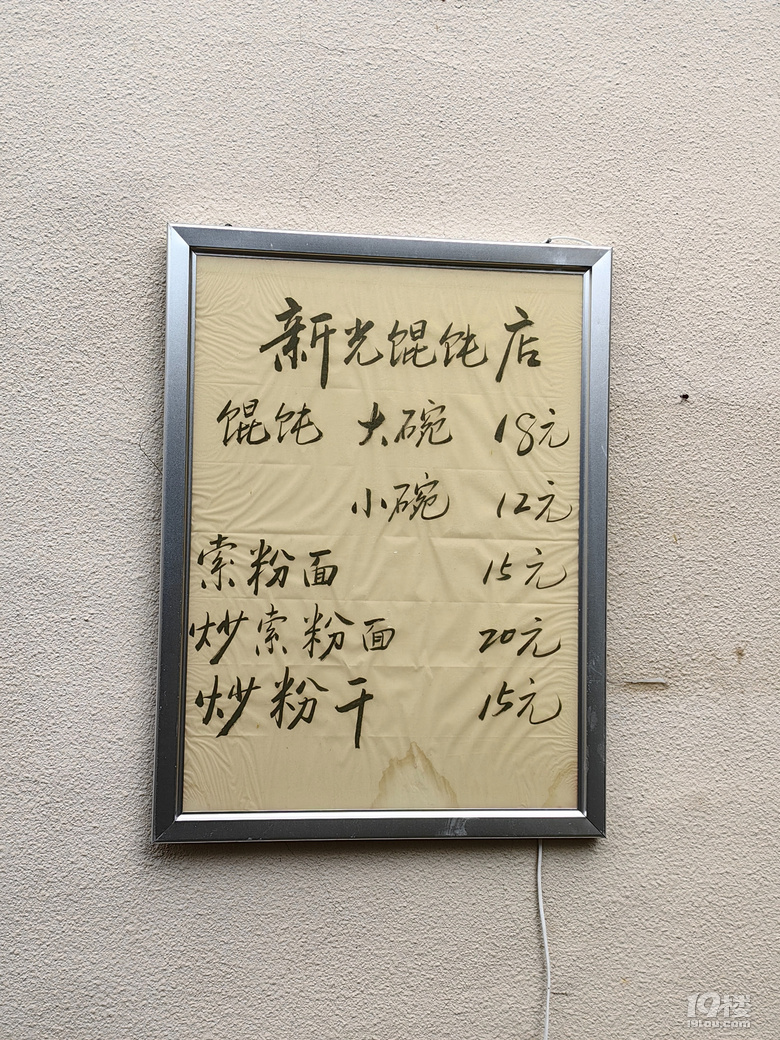 新光馄饨店
馄饨 大碗 18元
小碗 12元
索粉面 15元
炒索粉面 20元
炒粉干 15元
19楼
19lou.com